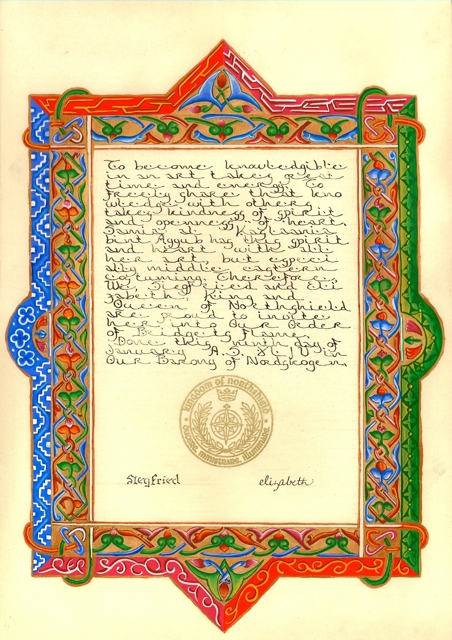 To become knowledgible
in an art takes great
time and energy. To
freely share that kno
wledge with others
takes kindness of spirit
and openness of heart.
Samira al-
bint Ayyub has this spirit
and heart with all
her art, but especi
ally middle eastern
costuming. Therefore,
We, Siegfried and Eli
zabeth, King and
Queen of Northshield
are proud to invite
her into Our Order
of Bridget's Flame.
Done this ninth day of
January A.S. in
Our Barony of Nordskogen.
kingdom of northshield
Siegfried elizabeth